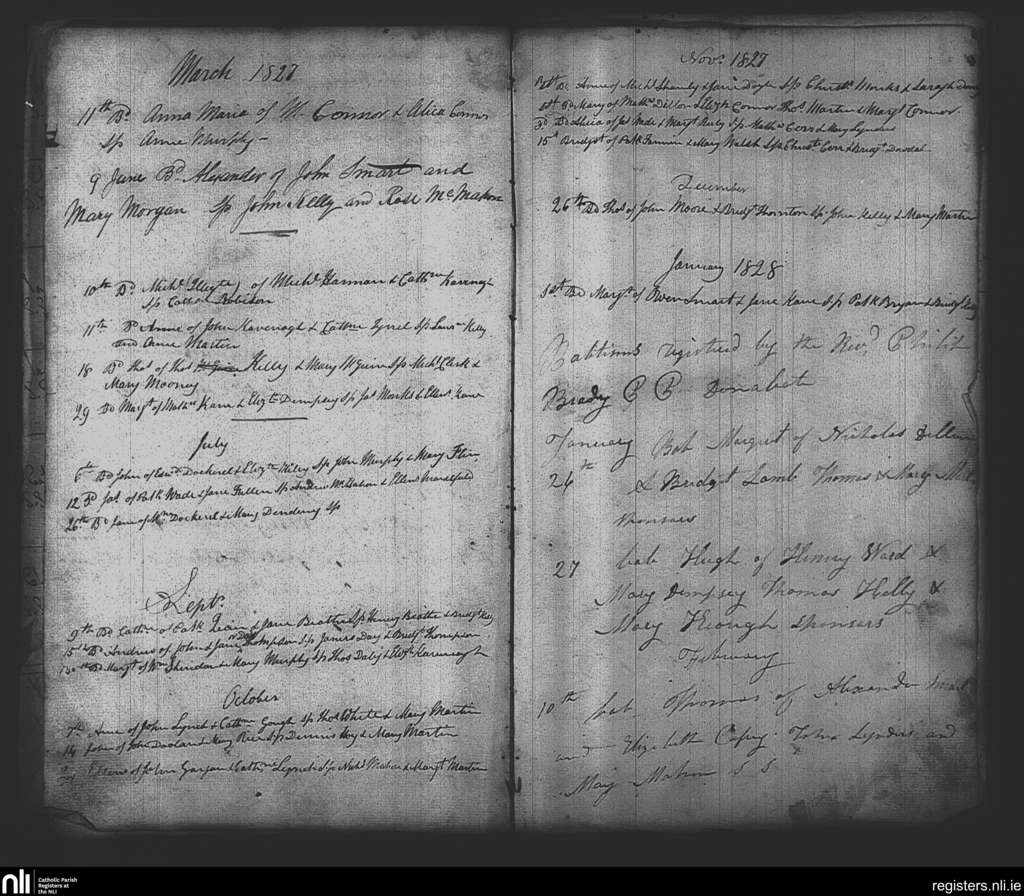 March 1827
11th Bd Anna Maria of W. Connor & Alica Connor
Sp Anne Murphy -
9 June Bd. Alexander of John Smart and
Mary Morgan Sp John Kelly and Rose McMahon
10th Bd. Michl of Michl Hannan & Cathne Kavenagh
Sp Cathne Robison
11th Bd Anne of John Kavenagh & Cathne Lynch Sp Laue Kelly
and Anne Martin
18 Bd Thos of Thos Kelly & Mary McGuire Sp Michl Clerk &
Mary Mooney
29 Bd Margt of Mathw Kane & Elizth Dempsey Sp Jas Monks & Ellen Kane
July
6th Bd John of Edwd Dockerel & Elizth Wiley Sp John Murphy & Mary Flin
12 Bd Jas. of Patk Wade & Jane Fullen Sp Andrew McMahon & Ellen
26th Bd Jane of Wm Dockerel & Mary Sp
Sept.
9th Bd Cathne of Patk & Jane Beattie Sp Henry Beattie & Bridgt Kelly
15th Bd Andrew of John Day & Jane Thompson Sp James Day & Bridgt Thompson
Bd Margt of Wm Sheridan & Mary Murphy Sp Thos Daly & Elizth Kavenagh
October
7th Anne of John Lynch & Cathne Gough Sp Thos White & Mary Martin
14 John of John & Mary Sp Dennis Hoy & Mary Martin
Ellenor of John & Cathne Lynch Sp Nichs Mahon & Margt Martin
Novr 1827
Bd Anne of Michl & Jane Doyle Sp Christr Monks & Sarah
1st Bd Mary of Mathw Dillon & Elizth Connor Thos Martin & Margt Connor
3d Bd Alicia of Jas Wade & Margt Sp Mathw Corr & Mary Lynders
15th Bridget of Patk & Mary Walsh Sp Christr Corr & Bridgt
December
26th Bd Thos of John Moore & Bridgt Thornton Sp John Kelly & Mary Martin
January 1828
1st Bd Margt. of Owen Smart & Jane Kane Sp Patk Bryan & Bridgt
Baptisms registered by the Revd. Philip
Brady P P Donabate
January Bab Margret of Nicholas Dillon
26th & Bridgt Lamb Thomas & Mary
sponsors
27 bab Hugh of Henry Ward &
Mary Dempsey Thomas Kelly &
Mary Keough sponsors
February
10th bab Thomas of Alexander Smart
and Elizabeth Lynders and
Mary Mahon S S
nli
Catholic Parish
Registers at
the NLI
registers.nli.ie